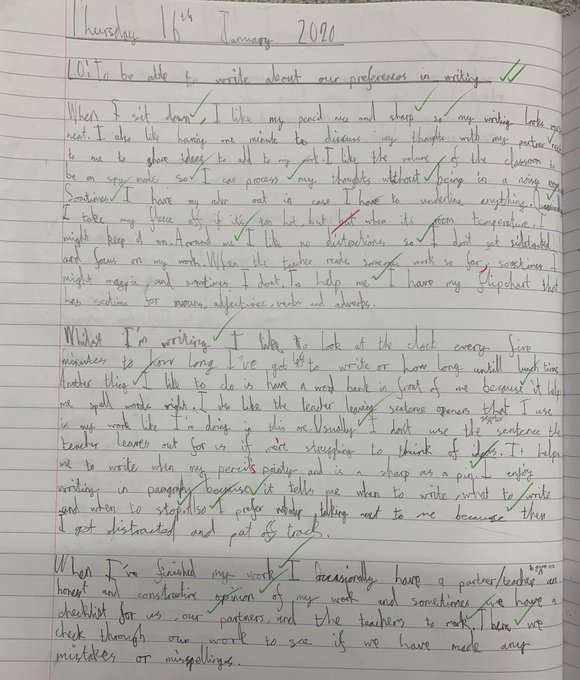 Thursday 16th January 2020
LO: To be able to write about our preferences in writing
When I sit down, I like my pencil nice and sharp so my writing looks
neat. I also like having one minute to discuss my thoughts with my partner next
to me to share ideas to add to my work. I like the volume of the classroom to
be on spy mode so I can process my thoughts without being in a noisy
Somtimes I have my ruler out in case I have to underline anything.
I take my fleece off if it's too hot, but but when its room temperature, I
might keep it on. Around me I like no distractions, so I don't get sidetracked
and focus on my work. When the teacher reads someones work so far, sometimes I
might magpie, and somtimes I dont. To help me I have my flipchart that
has sections for nouns, adjectives, verbs and adverbs.
Whilst I'm writing I like to look at the clock every five
minutes to how long I've got left to write or how long untill lunch time.
Another thing I like to do is have a word bank in front of me because it help
me spell words right. I also like the teacher leaving sentence openers that I use
in my work like I'm doing in this one. Usually I don't use the sentence the
teacher leaves out for us if we're struggling to think of ideas. It helps
me to write when my pencil's pointy and is a sharp as a pin. I enjoy
writing in paragraphs because it tells me when to write, what to write
and when to stop. Also I prefer nobody talking next to me because then
I get distracted and put of track.
When I've finished my work I occasionally have a partner/teacher an
honest and constructive opinion of my work and sometimes we have a
checklist for us, our partners, and the teachers to mark. Then we
check through our work to see if we have made any
mistakes or misspellings.